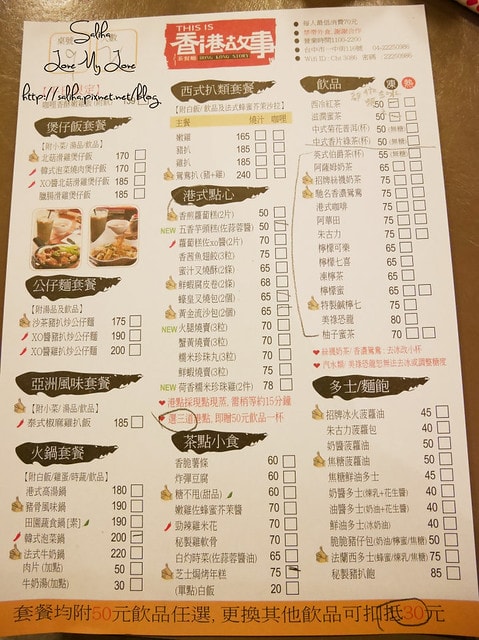 Saliha
Love My Love
http://saliha.pixnet.net/blog
桌號
THIS IS
香港故事
茶餐廳 HONG KONG STORY
每人最低消費70元
禁帶外食, 謝謝合作
營業時間1100-2200
煲仔飯套餐
【附小菜/湯品/飲品】
北菇滑雞煲仔飯 170
韓式泡菜燒肉煲仔飯 170
XO醬北菇滑雞煲仔飯 185
臘腸滑雞煲仔飯 185
公仔麵套餐
【附湯品及飲品】
沙茶豬扒炒公仔麵 175
XO醬豬扒炒公仔麵 190
XO醬雞扒炒公仔麵 200
亞洲風味套餐
【附小菜/湯品/飲品】
泰式椒麻雞扒飯 185
火鍋套餐
【附白飯/雞蛋/時蔬/飲品】
港式高湯鍋 180
豬骨風味鍋 190
田園蔬食鍋[素] 190
韓式泡菜鍋 200
法式牛奶鍋 220
肉片 (加點) 50
牛奶湯(加點) 30
西式扒類套餐
【附白飯/飲品及法式蜂蜜芥茉沙拉】
主餐 燒汁 咖哩
嫩雞 165
豬扒 185
雞扒 185
鴛鴦扒 (豬+雞) 240
港式點心
香煎蘿蔔糕(2片) 50
NEW 五香芋頭糕(佐蒜蓉醬) 50
蘿蔔糕佐xo醬(2片) 70
香茜魚翅餃(3粒) 75
蜜汁叉燒酥(2條) 65
鮮蝦腐皮卷(2條) 68
蠔皇叉燒包(2個) 65
黃金流沙包(2個) 65
NEW 火腿燒賣(3粒) 70
蟹黃燒賣(3粒) 70
糯米珍珠丸(3粒) 70
鮮蝦燒賣(3粒) 75
NEW 荷香糯米珍珠雞(2件) 78
港點採現點現蒸, 需稍等約15分鐘
選三道港點, 即贈50元飲品一杯
茶點小食
香脆薯條 60
炸彈豆腐 60
糖不甩(甜品) 60
嫩雞佐蜂蜜芥茉醬 70
勁辣雞米花 70
秘製雞軟骨 70
白灼時菜(佐蒜蓉醬油) 65
芝士焗烤年糕 75
(單點)白飯 20
飲品 凍 熱
西冷紅茶 50
滋潤蜜茶 50
中式菊花普洱(杯) 50 (無糖)
中式香片綠茶(杯) 50 (無糖)
英式伯爵茶(杯) 55 (無糖)
阿薩姆奶茶 65
招牌絲襪奶茶 75
馳名香濃鴛鴦 75
港式咖啡 75
阿華田 75
朱古力 75
檸檬可樂 65
檸檬七喜 65
凍檸茶 65
檸檬蜜 65
特製鹹檸七 75
美祿恐龍 80
柚子蜜茶 70
絲襪奶茶/香濃鴛鴦:去冰改小杯
汽水類/美祿恐龍恕無法去冰或調整糖度
多士/麵飽
招牌冰火菠蘿油 45
朱古力菠蘿包 40
奶醬菠蘿油 50
焦糖菠蘿油 50
焦糖鮮油多士 45
奶醬多士(煉乳+花生醬) 40
油醬多士(奶油+花生醬) 40
鮮油多士(冰奶油) 40
脆脆豬仔包(奶油/檸蜜/焦糖) 50
法蘭西多士(蜂蜜/煉乳/焦糖) 75
秘製豬扒飽 85
套餐均附50元飲品任選, 更換其他飲品可扣抵30元